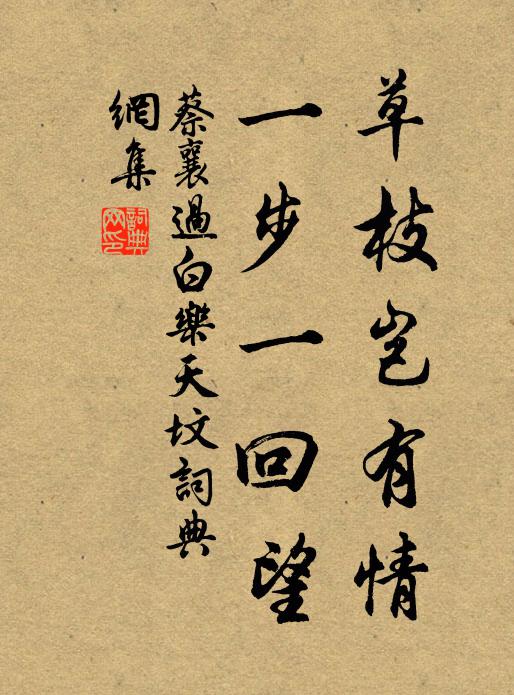 草枝豈有情
一步一回望
蔡襄過白樂天墳詞典
網集
詞典
网印